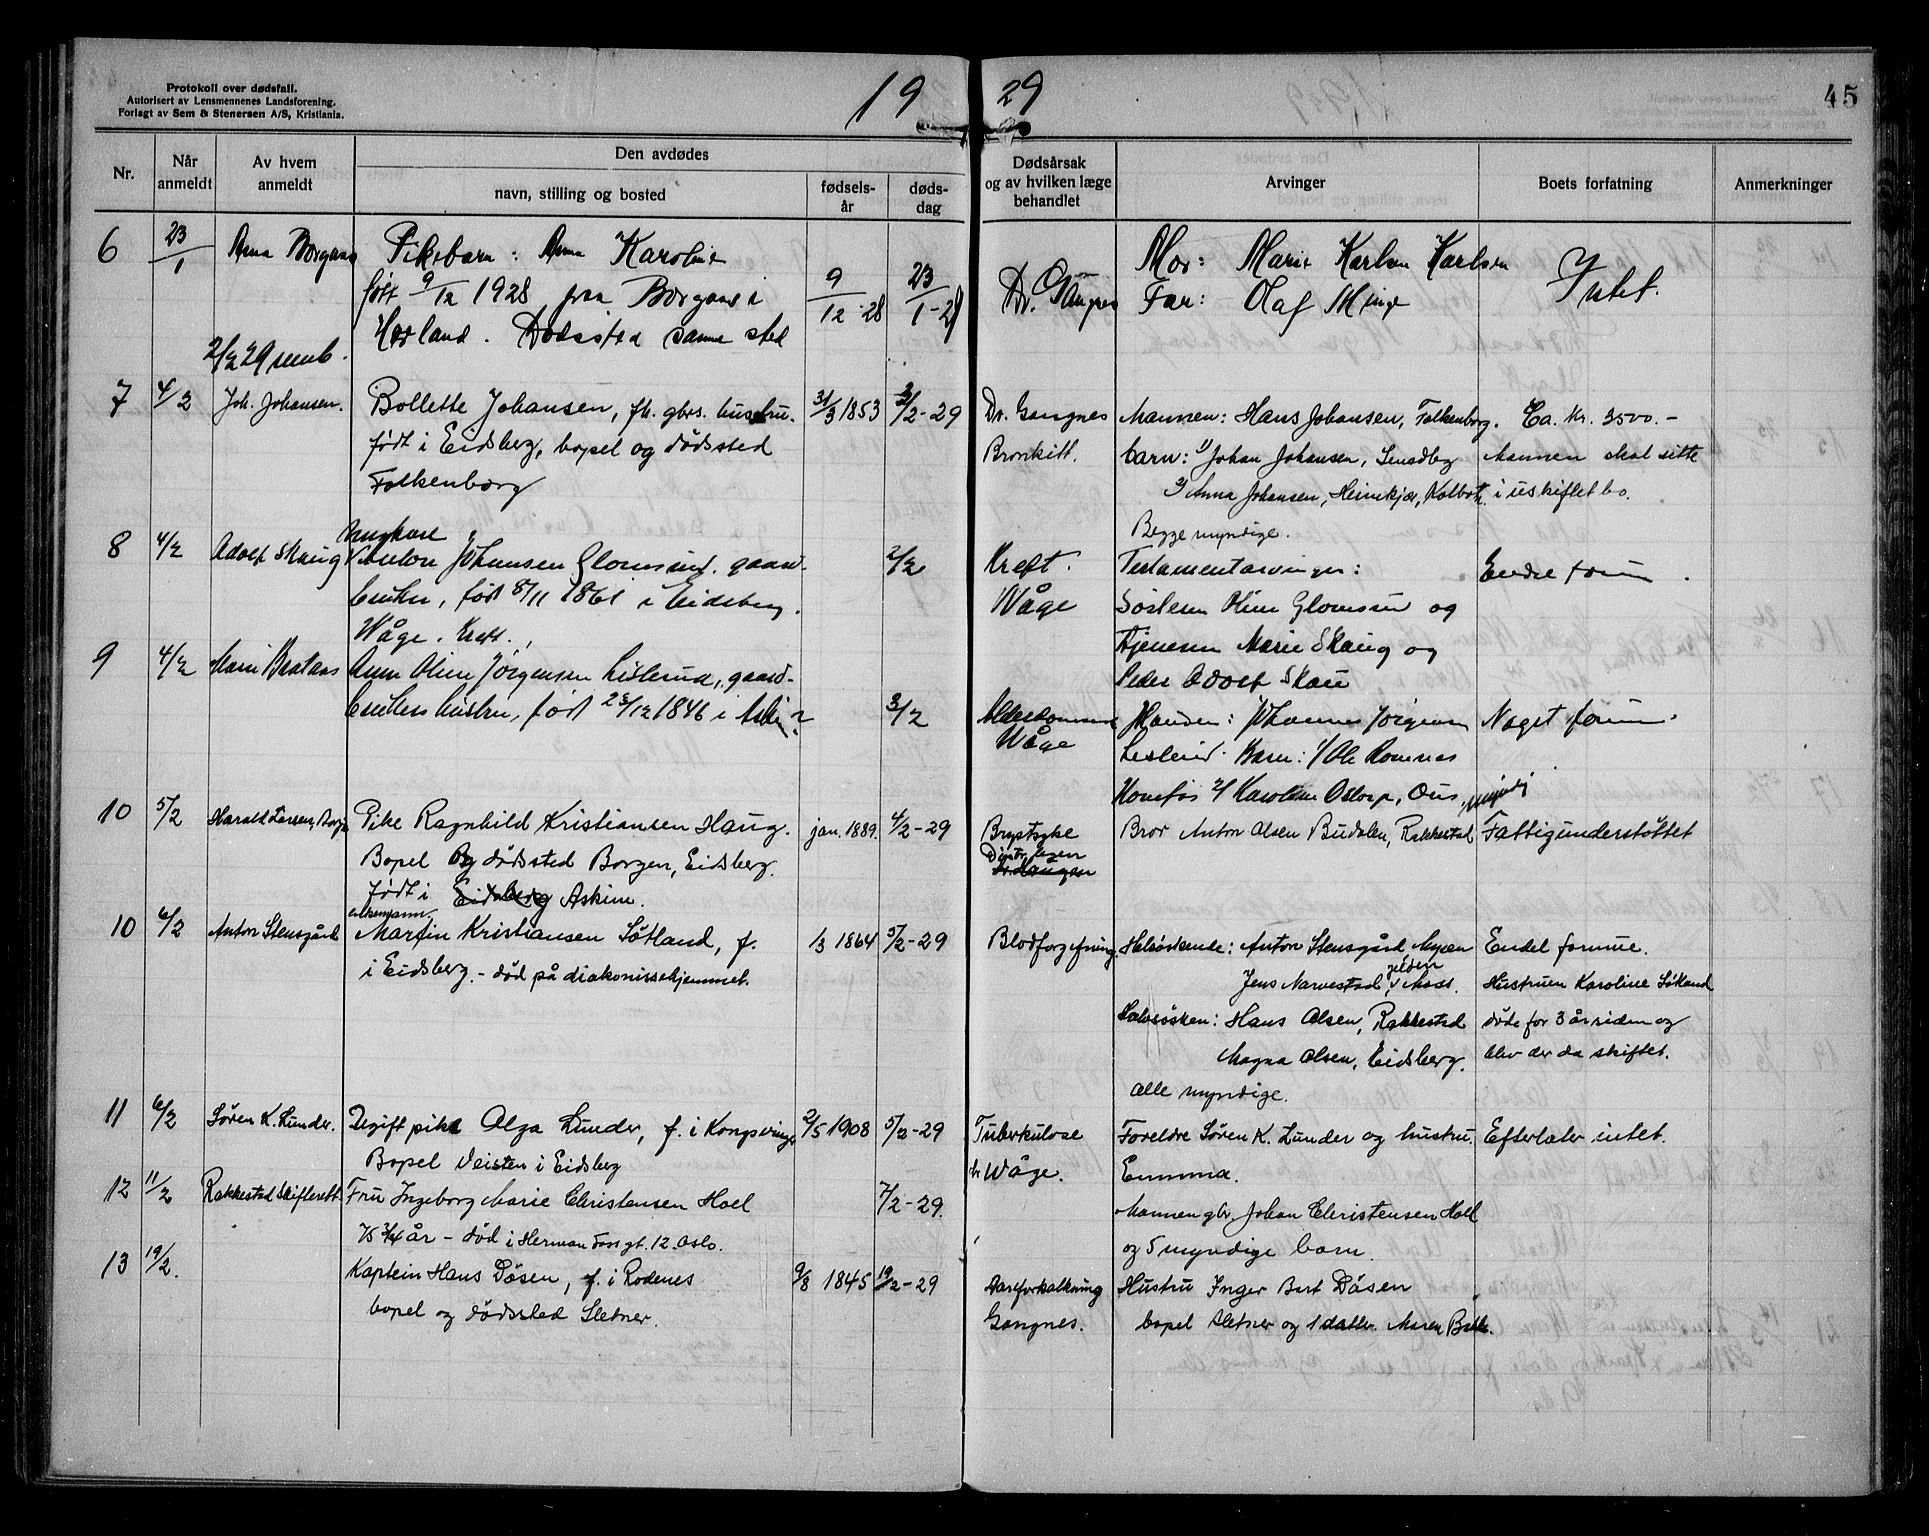 Protokoll over dødsfall.
Autorisert av Lensmennenes Landsforening.
Forlagt av Sem & Stenersen A/S, Kristiania.
19 29
45
Nr.
Når anmeldt
Av hvem anmeldt
Den avdødes
navn, stilling og bosted
fødsels-år
døds-dag
Dødsårsak og av hvilken læge behandlet
Arvinger
Boets forfatning
Anmerkninger
6 23/1 Borgaas Pikebarn: Anna Karoline 9/12-28 23/1-29 Dr. Gangnes Mor: Marie Karlsen Karlsen Intet.
født 9/12 1928 fraa Borgaas i Far: Olaf Minge
Hærland. Dødssted samme sted
2/2 29
7 4/2 Joh. Johansen. Bollette Johansen, fh. gbrs. hustru. 31/3 1853 2/2-29 Dr. Gangnes Mannen: Hans Johansen, Falkenborg. Ca. kr. 3500.-
født i Eidsberg, bopel og dødssted Bronkitt. barn: 1) Johan Johansen, Mannen skal sitte
Falkenborg 2) Anna Johansen, Heimkjær, Kolbotn. i uskiftet bo.
Begge myndige.
8 4/2 Adolf Skaug Ungkare Anton Johansen Glomsrud. gaard- 2/2 Kreft. Testamentarvinger: Endel formue.
bruker, født 8/11 1861 i Eidsberg. Wåge Søsteren Oline Glomsrud og
Wåge. Kreft. Tjeneren Marie Skaug og
Peder Adolf Skau
9 4/2 Marie Braataas Anne Oline Jørgensen Lislerud, gaard-
brukers hustru, født 23/12 1846 i Askim 3/2 Alderdom Manden: Johannes Jørgensen Noget formue.
Wåge Lislerud. Barn: 1/ Ole Romnes
Honefos 2/ Karoline Ostorp, Ous, myndig
10 5/2 Harald Larsen, Borge Pike Ragnhild Kristiansen Haug. jan. 1889. 4/2-29 Brystsyke Bror Anton Olsen Budalen, Rakkestad Fattigunderstøttet
Bopel og dødssted Borgen, Eidsberg. Distr. legen
født i Eidsberg Askim.
10 6/2 Anton Stensgård enkemann Martin Kristiansen Søtland, f. 1/3 1864 5/2-29 Blodforgiftning. Helsøskende: Anton Stensgård Mysen Endel formue.
i Eidsberg. - død på diakonissehjemmet. Jens Narvestad, Jeløen, Moss. Hustruen Karoline Søtland
Halvsøsken: Hans Olsen, Rakkestad døde for 3 år siden og
Magna Olsen, Eidsberg. blev der da skiftet.
alle myndige.
11 6/2 Søren K. Lunder. Ugift pike Olga Lunder, f. i Kongsvinger 2/5 1908 5/2-29 Tuberkulose Foreldre Søren K. Lunder og hustru Efterlater intet.
Bopel Veisten i Eidsberg dr Wåge. Emma.
12 11/2 Rakkestad Skifterett Fru Ingeborg Marie Christensen Hoel 7/2-29. Mannen gbr. Johan Christensen Hoel
75 3/4 år - død i Herman Fossgt. 12. Oslo. og 5 myndige barn.
13 19/2. Kaptein Hans Døsen, f. i Rødenes 9/8 1845 19/2-29 Aareforkalkning Hustru Inger Døsen
bopel og dødssted Sletner. Gangnes. bopel Sletner og 1 datter Maren